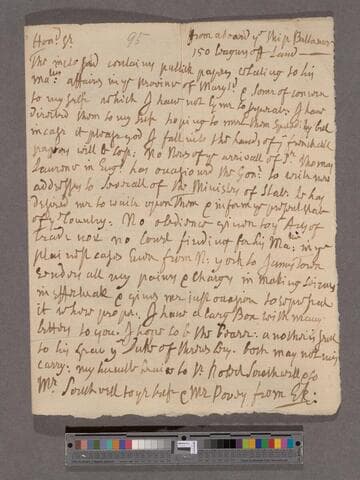 Honᵈ Sʳ
95
from aboard yᵉ ship Baltamor
150 leagues off Land
The inclosed contains publick papers relating to his
Maᵗⁱᵉˢ affairs in yᵉ province of Maryl & some of concern
to my self which I have not time to I have
directed them to my self hoping to
in case it please god I fall into the hands of yᵉ french all
papers will be lost: No News of yᵉ arrivall of Sʳ Thomas
Laurence in Engˡ has occasioned the Govʳ to write
addresses to severall of the Ministry of State he has
desired me to waite upon them & inform yᵉ present state
of yᵉ Country. No obedience given to yᵉ Acts of
trade nor no Court finding for his Maᵗⁱᵉ in yᵉ
plainest cases Even from N: york to James town
renders all my pains & Charg in making
ineffectuall & gives me just occasion to represent
it where proper. I have a large Box with
letters to you. I hope to be the bearer: another is
to his Grace yᵉ Duke of Shrewsbery. both may not mis
carry. my humble service to Sʳ Robᵗ Southwell also
Mʳ Southwell to yʳ self & Mʳ Povey from ER: